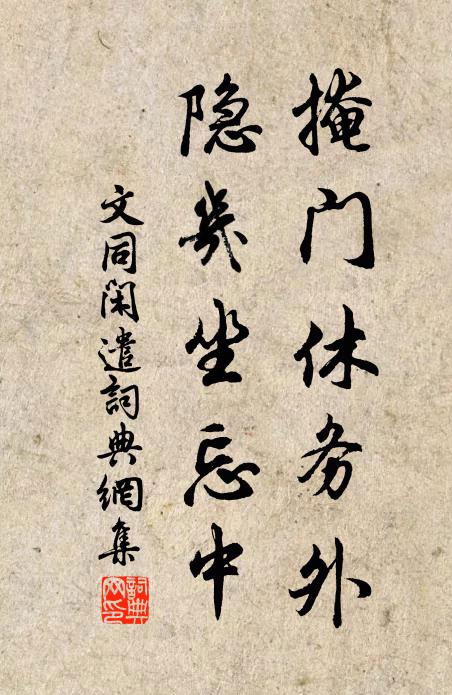 掩门休务外
隐几坐忘中
文同闲遣词典網集
詞典网印